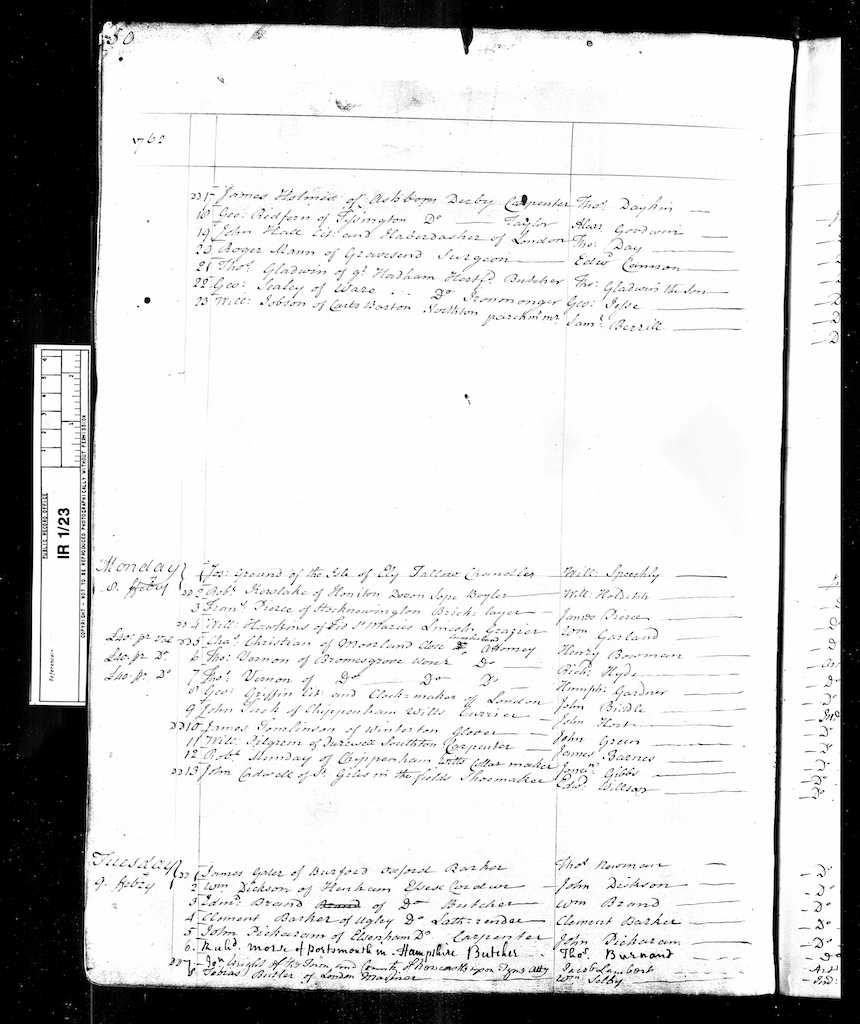 50
1762
22 17 James Holmes of Ashborn Derby Carpenter Thos. Daykin
18 Geo: Redfern of Tissington Do Taylor Alexr Goodwin
19 John Hall Cit: and Haberdasher of London Tho: Day
20 Roger Mann of Gravesend Surgeon Edwd Cannon
21 Thos. Gladwin of gt Hadham Hertfd. Butcher Tho: Gladwin the Son
22 Geo: Sealey of Ware .. Do Ironmonger Geo: Jesse
23 Will: Jobson of Earls Barton Northton parchmt mr. Saml. Berrill
PUBLIC RECORD OFFICE
IR 1/23
Reference:-
COPYRIGHT - NOT TO BE REPRODUCED PHOTOGRAPHICALLY WITHOUT PERMISSION
Monday 8. ffebry
1 Jos: Ground of the Isle of Ely Tallow Chandler Will: Speechly
22 2 Robt. Kerslake of Honiton Devon Sope Boyler Will: Holditch
3 Frans. Pierce of Stoknewington Brick-layer James Pierce
22 4 Will: Hawkins of St Maries Lincoln: Grazier Wm Garland
22 5 Chas. Christian of Moorland Close Cumberland Attorney Henry Bowman
6 Tho: Vernon of Bromesgrove Do Richd. Hyde
7 Thos. Vernon of Do Do Humph: Gardner
8 Geo: Griffin Cit: and Clock-maker of London John Biddle
9 John Tuck of Chippenham Wilts Currier John Hort
22 10 James Tomlinson of Winterton Glover John Green
11 Will: Pilgrem of Southton Carpenter James Barnes
12 Robt. Munday of Chippenham Wilts Collar maker Gibbs
22 13 John Cadwell of St. Giles in the fields Shoemaker Edwd. Willson
Tuesday 9. ffebry
22 1 James Galer of Burford Oxford Barker Thos. Newman
2 Wm Dickson of Henham Essex Cordwr John Dickson
3 Edmd. Brand of Do Butcher Wm Brand
4 Clement Barker of Ugley Do Lath-render Clement Barker
5 John Picharam of Elsenham Do Carpenter John Picharam
6. Richd. more of portsmouth in Hampshire Butcher Thos. Burnand
22 7 Jno Wright of the Town and County of Newcastle upon Tyne Atty Jacob Lambert
8 Tobias Butler of London Mariner Wm Selby